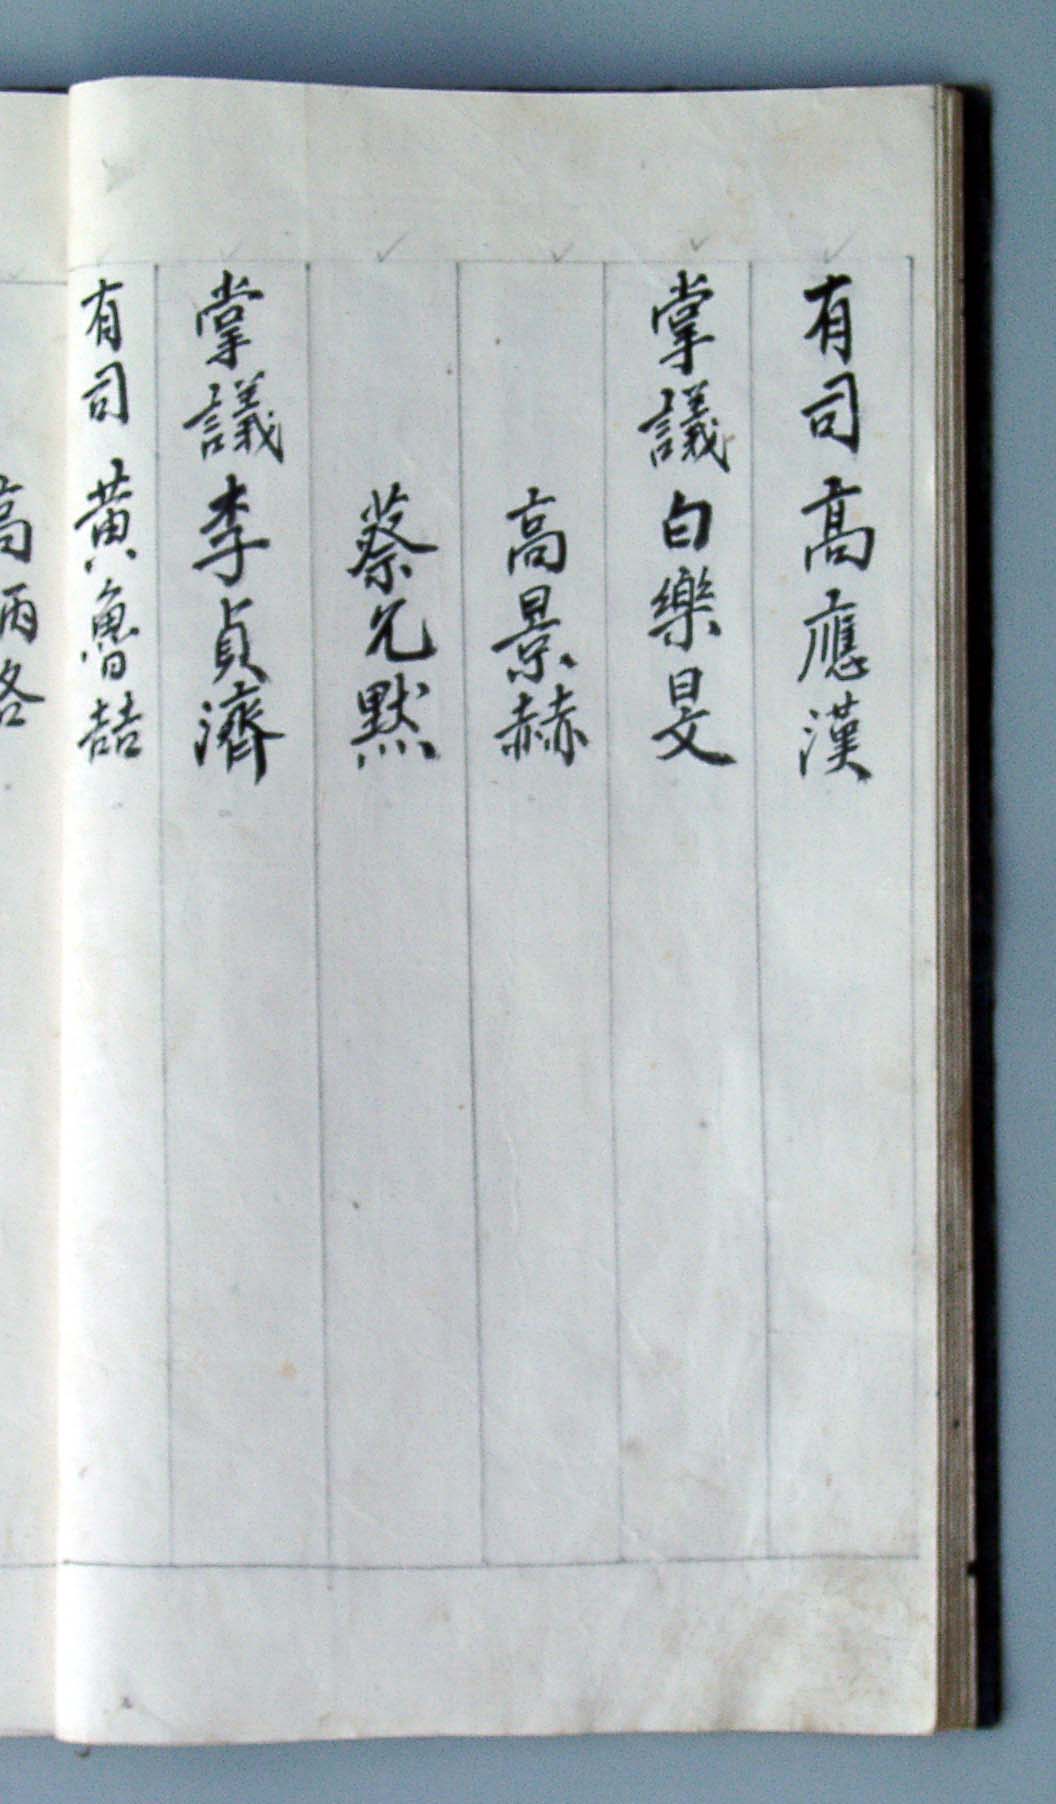 有司 高應漢
掌議 白樂旻
高景赫
蔡允默
掌議 李貞濟
有司 黃魯喆
高